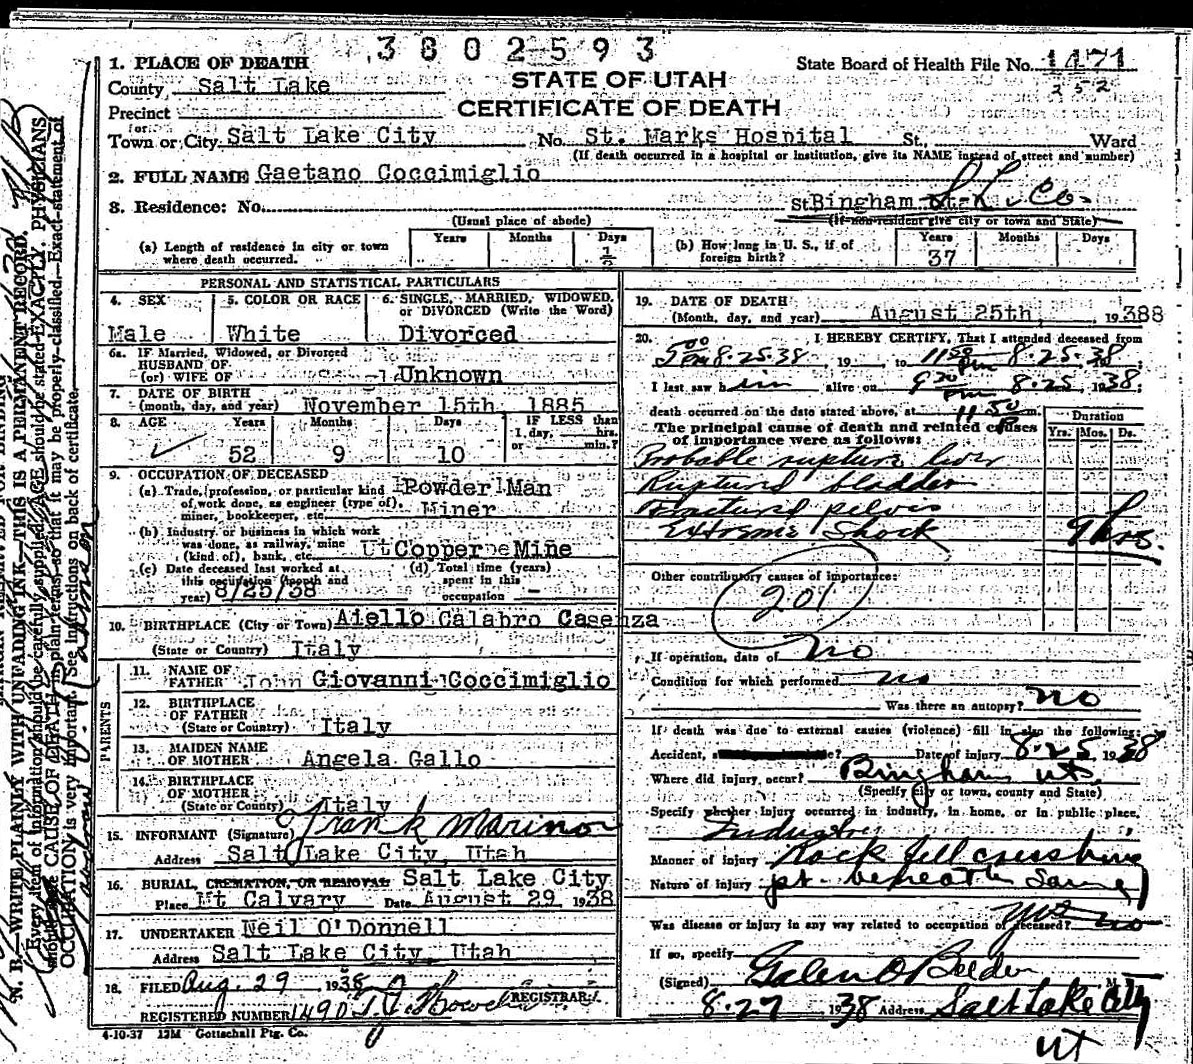 3802593
1. PLACE OF DEATH
County Salt Lake
STATE OF UTAH
CERTIFICATE OF DEATH
State Board of Health File No. 1471
252
Precinct
(or)
Town or City Salt Lake City No. St. Marks Hospital St., Ward
(If death occurred in a hospital or institution, give its NAME instead of street and number)
2. FULL NAME Gaetano Coccimiglio
3. Residence: No. St. Bingham S. L. Co.
(Usual place of abode) (If non-resident give city or town and State)
(a) Length of residence in city or town where death occurred. Years Months Days ½
(b) How long in U. S., if of foreign birth? Years 37 Months Days
PERSONAL AND STATISTICAL PARTICULARS
4. SEX Male
5. COLOR OR RACE White
6. SINGLE, MARRIED, WIDOWED, or DIVORCED (Write the Word) Divorced
6a. IF Married, Widowed, or Divorced
HUSBAND OF
(or) WIFE OF Unknown
7. DATE OF BIRTH
(month, day, and year) November 15th 1885
8. AGE Years 52 Months 9 Days 10 IF LESS than 1 day, hrs. or min.?
9. OCCUPATION OF DECEASED
(a) Trade, profession, or particular kind of work done, as engineer (type of), miner, bookkeeper, etc. Powder Man Miner
(b) Industry or business in which work was done, as railway, mine (kind of), bank, etc. Ut Copper Mine
(c) Date deceased last worked at this occupation (month and year) 8/25/38
(d) Total time (years) spent in this occupation -
10. BIRTHPLACE (City or Town) Aiello Calabro Casenza
(State or Country) Italy
PARENTS
11. NAME OF FATHER John Giovanni Coccimiglio
12. BIRTHPLACE OF FATHER
(State or Country) Italy
13. MAIDEN NAME OF MOTHER Angela Gallo
14. BIRTHPLACE OF MOTHER
(State or Country) Italy
15. INFORMANT (Signature) Frank Marino
Address Salt Lake City, Utah
16. BURIAL, CREMATION, OR REMOVAL Salt Lake City
Place Mt Calvary Date August 29 1938
17. UNDERTAKER Neil O'Donnell
Address Salt Lake City, Utah
18. FILED Aug. 29 1938
REGISTRAR
REGISTERED NUMBER 1490
4-10-37 12M Gottschall Ptg. Co.
19. DATE OF DEATH
(Month, day, and year) August 25th, 19388
20. I HEREBY CERTIFY, That I attended deceased from
5 00 pm 8.25.38 19 to 11 50 pm 8.25.38
I last saw him alive on 9 30 pm 8.25, 1938;
death occurred on the date stated above, at 11 50 m.
The principal cause of death and related causes of importance were as follows:
Duration
Yrs. Mos. Ds.
Probable rupture liver
Ruptured bladder
Fractured pelvis
Extreme Shock 9 hrs.
Other contributory causes of importance:
201
If operation, date of no
Condition for which performed no
Was there an autopsy? no
If death was due to external causes (violence) fill in also the following:
Accident, Date of injury 8.25 1938
Where did injury occur? Bingham Ut.
(Specify city or town, county and State)
Specify whether injury occurred in industry, in home, or in public place.
Industry
Manner of injury Rock fell crushing
Nature of injury pt. beneath same
Was disease or injury in any way related to occupation of deceased? yes no
If so, specify
(Signed) Galen O Belden M.
8.27 1938 Address Salt Lake City
Ut
N. B.—WRITE PLAINLY WITH UNFADING INK—THIS IS A PERMANENT RECORD.
Every item of information should be carefully supplied. AGE should be stated EXACTLY. PHYSICIANS
should state CAUSE OF DEATH in plain terms, so that it may be properly classified. Exact statement of
OCCUPATION is very important. (See instructions on back of certificate.